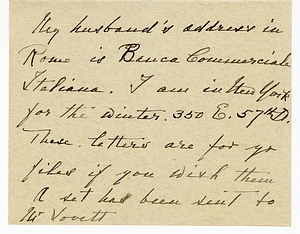 My husband's address in
Rome is Banca Commerciale
Italiana. I am in New York
for the winter. 350 E. 57th
These letters are for yr
files if you wish them
A set has been sent to
Mr Lovett